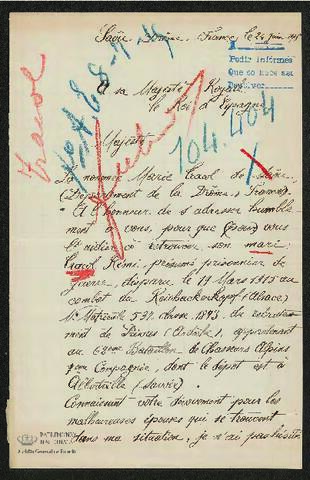 Drôme. France, le 24 Juin 1915
Pedir informes
Que no hace ser
A sa Majesté Royale
le Roi d'Espagne
104.404
Majesté
La nommée Marie Tracol de
(Département de la Drôme, France)
A l'honneur de s'adresser humble-
ment à vous, pour que (pour) vous
l'aidiez à retrouver son mari:
Tracol Rémi, présumé prisonnier de
guerre, disparu le 19 Mars 1915 au
combat de Reichackerkopf (Alsace)
classe 1893, du recrute-
ment de Privas (Ardèche), appartenant
au 62ème Bataillon de Chasseurs Alpins
Compagnie, dont le dépôt est à
Albertville (Savoie).
Connaissant votre dévouement pour les
malheureuses épouses qui se trouvent
dans ma situation, je n'ai pas hésité
Tracol
PATRIMONIO
NACIONAL